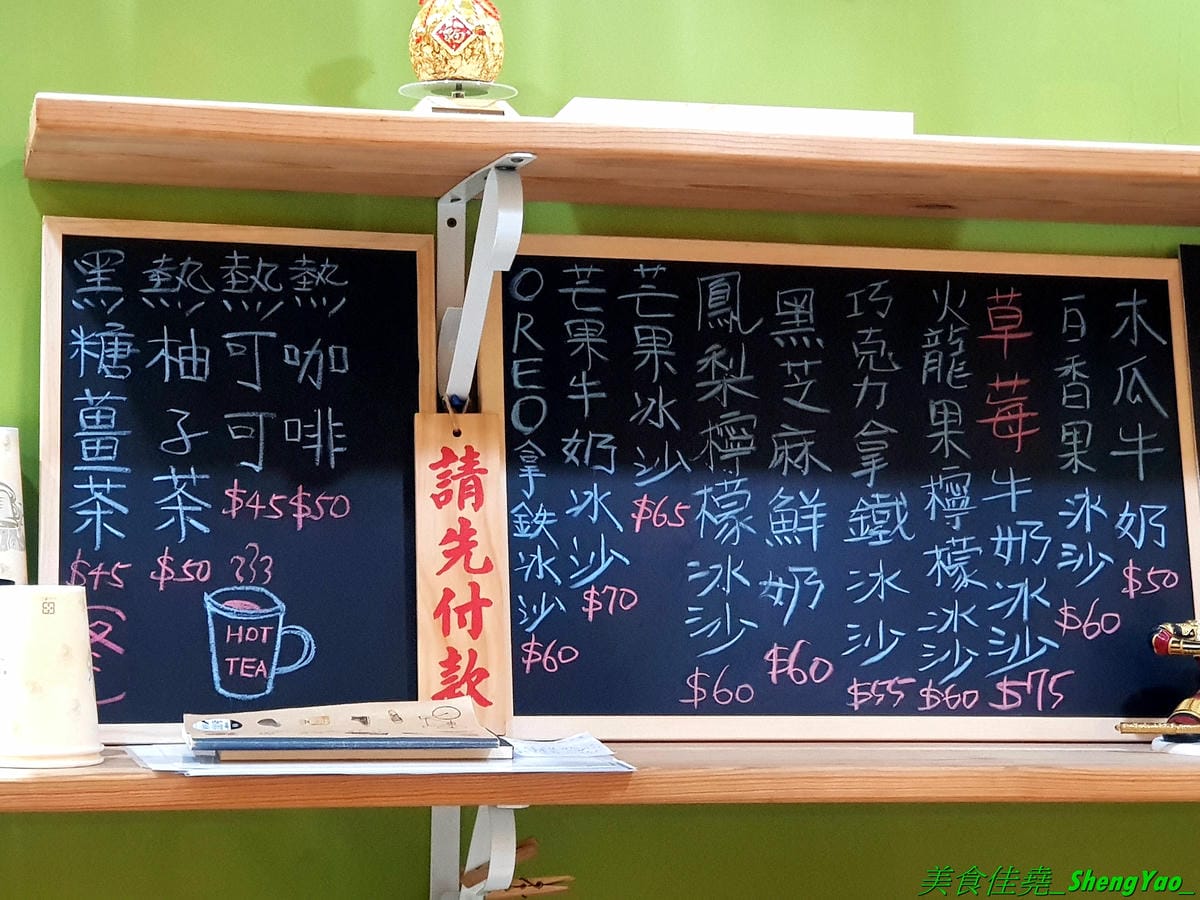 木瓜牛奶 $50
百香果冰沙 $60
草莓牛奶冰沙 $75
火龍果檸檬冰沙 $60
巧克力拿鐵冰沙 $55
黑芝麻鮮奶 $60
鳳梨檸檬冰沙 $60
芒果冰沙 $65
芒果牛奶冰沙 $70
OREO拿鉄冰沙 $60
請先付款
熱咖啡 $50
熱可可 $45
熱柚子茶 $50
黑糖薑茶 $45
HOT
TEA
美食佳堯_ShengYao_